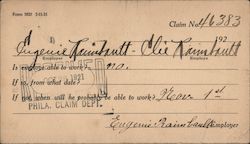 Form 1021 2-15-21
Claim No. 46383
Eugenie Raimbault - Elie Raimbault 192
Employee Employer
Is employee able to work? no.
If so, from what date?
1921
If not, when will be probably be able to work? Nov 1st
PHILA. CLAIM DEPT.
Eugenie Raimbault Employer